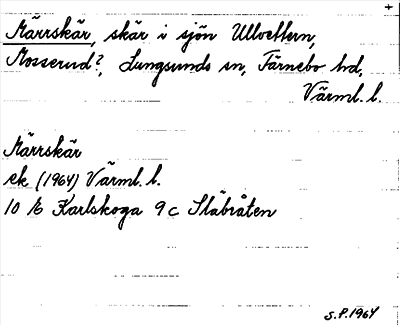 Märrskär, skär i sjön Ullvettern,
Mosserud?, Lungsunds sn, Färnebo hd,
Värml. l.
Märrskär
ek (1964) Värml. l.
10 E Karlskoga 9 c Släbråten
S.P. 1964